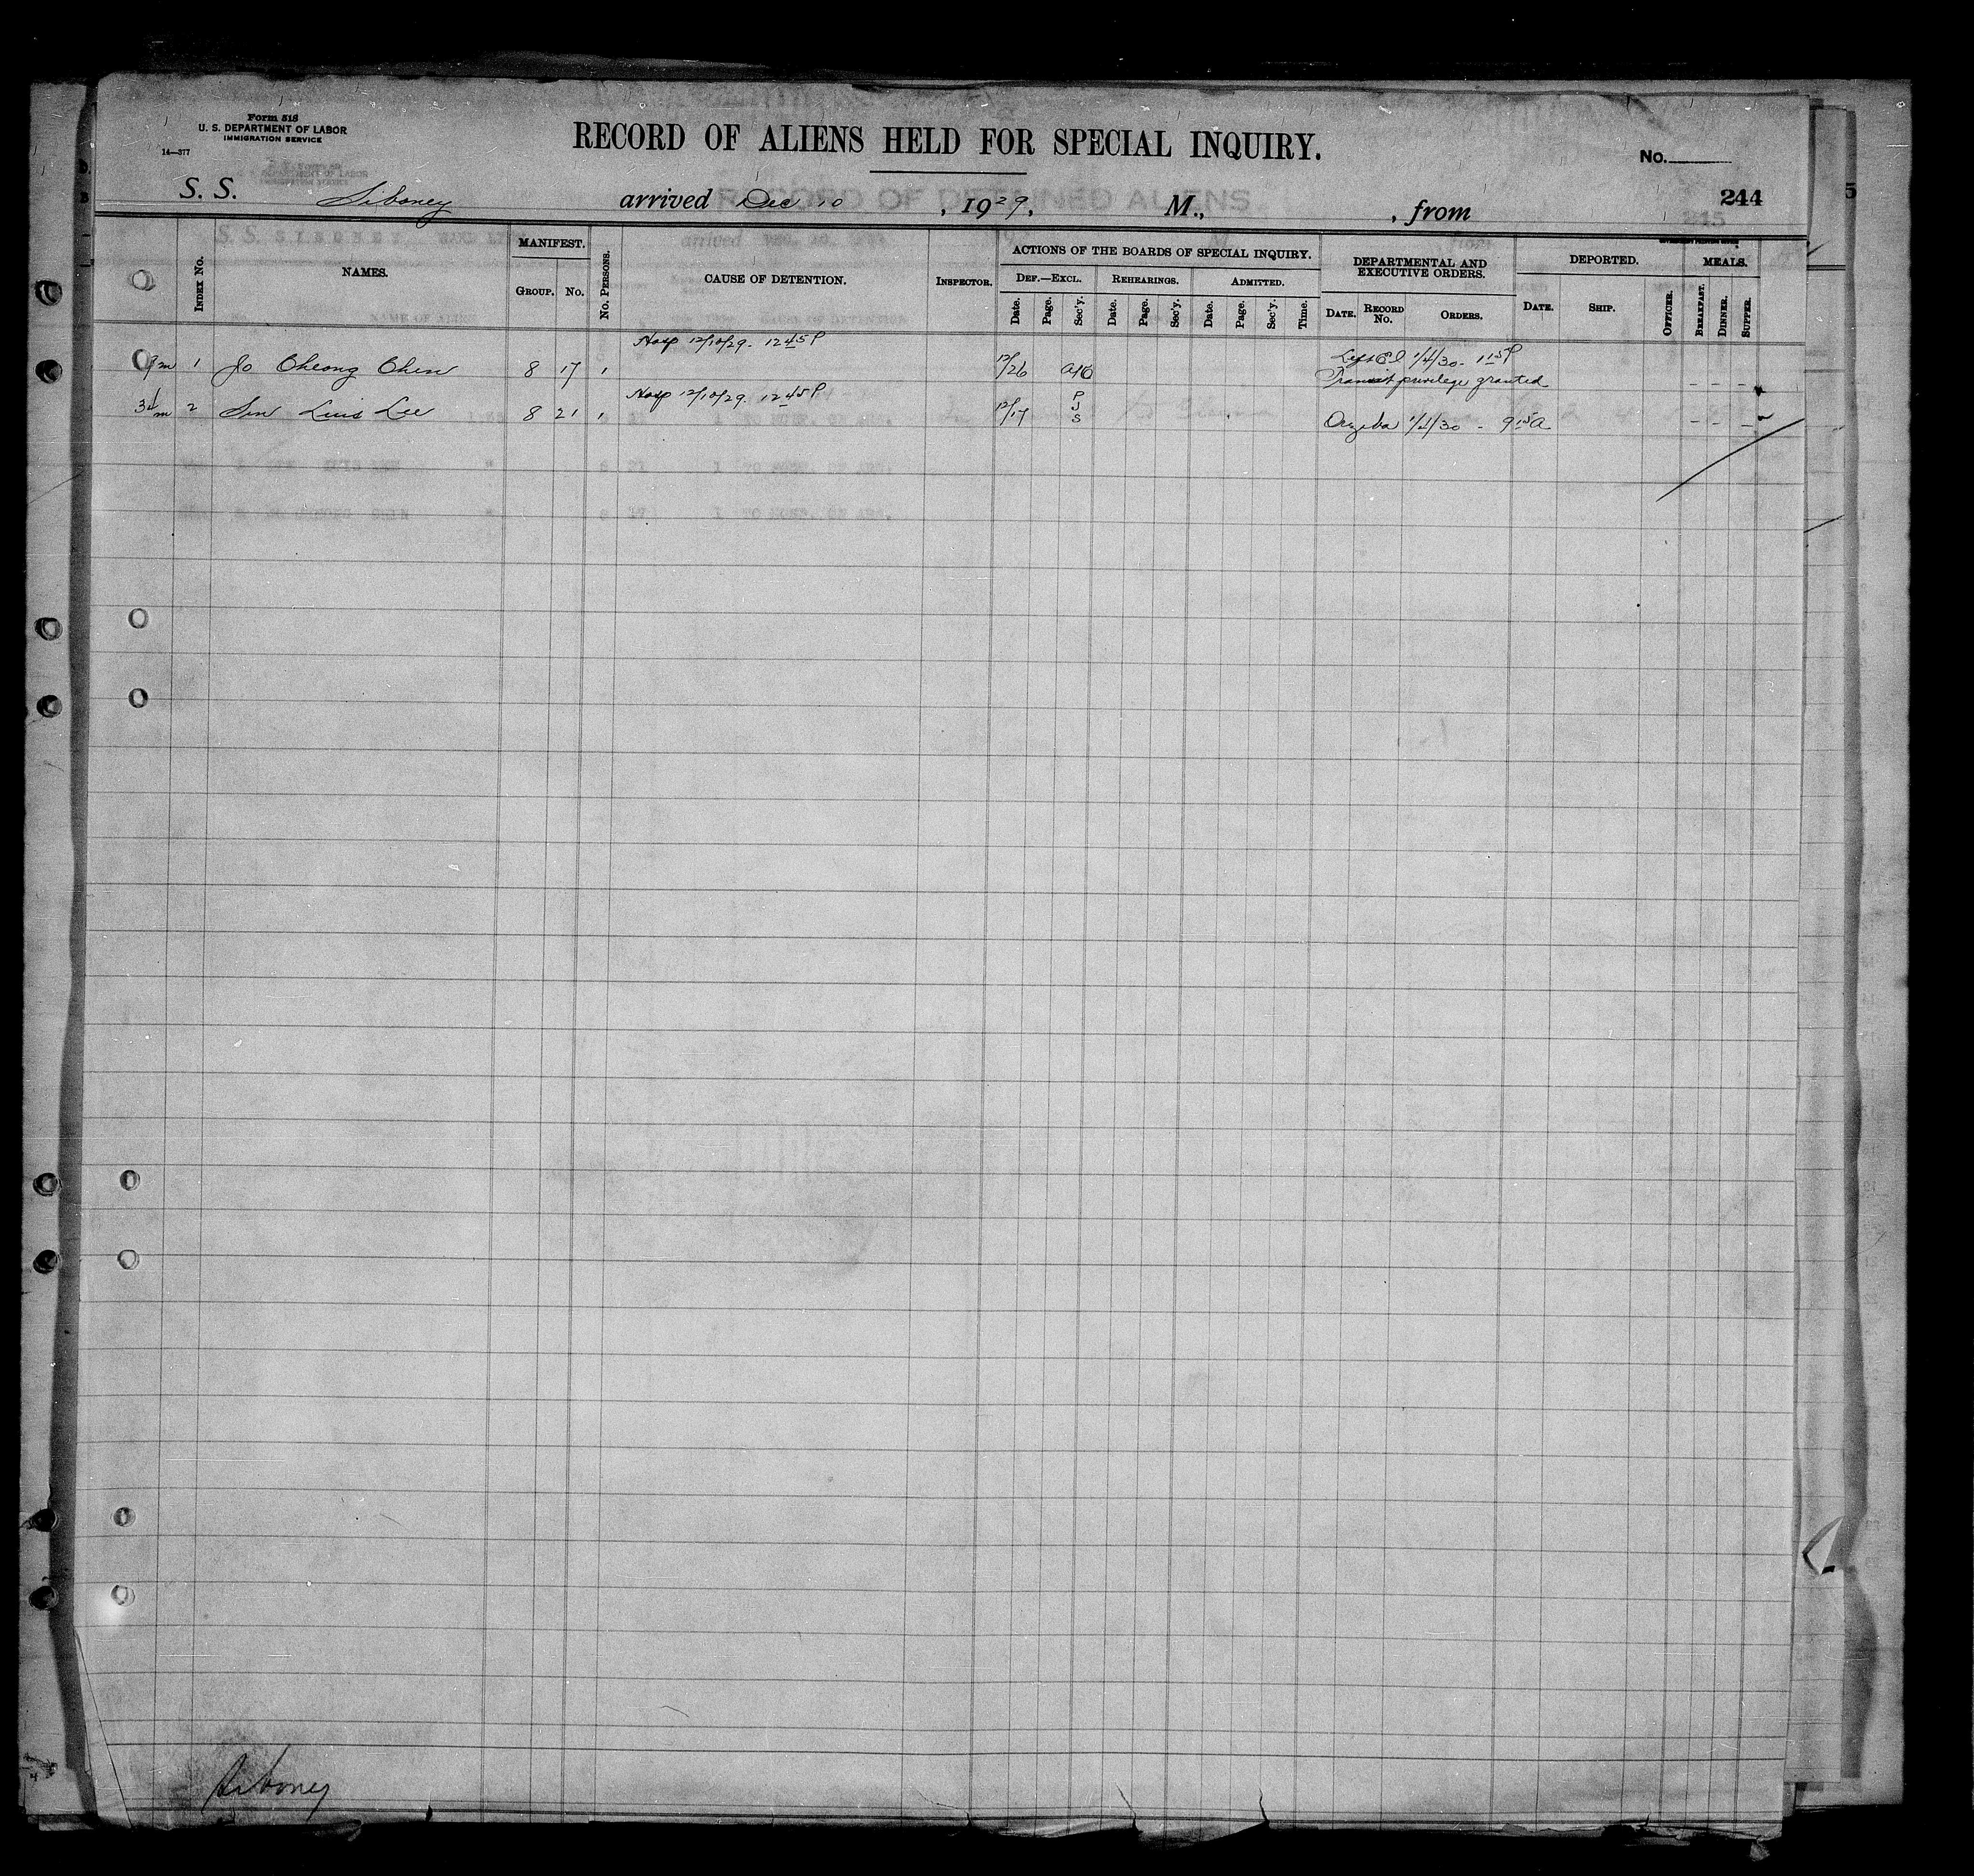 Form 518
U. S. DEPARTMENT OF LABOR
IMMIGRATION SERVICE
14—377
RECORD OF ALIENS HELD FOR SPECIAL INQUIRY.
No.
244
S. S. Siboney arrived Dec 10, 1929, M., , from
INDEX No. NAMES. MANIFEST. GROUP. No. No. PERSONS. CAUSE OF DETENTION. INSPECTOR. ACTIONS OF THE BOARDS OF SPECIAL INQUIRY. DEF.—EXCL. Date. Page. Sec'y. REHEARINGS. Date. Page. Sec'y. ADMITTED. Date. Page. Sec'y. Time. DEPARTMENTAL AND EXECUTIVE ORDERS. DATE. RECORD No. ORDERS. DEPORTED. DATE. SHIP. OFFICER. MEALS. BREAKFAST. DINNER. SUPPER.
Hosp 12/10/29. 12 45 P
1 Jo Cheong Chen 8 17 1 12/26 1/4/30 - 1 15 P
Transit privilege granted
Hosp 12/10/29. 12 45 P
2 Sen Luis Lee 8 21 1 12/17 P J S Orizaba 1/1/30 - 9 15 A
Siboney